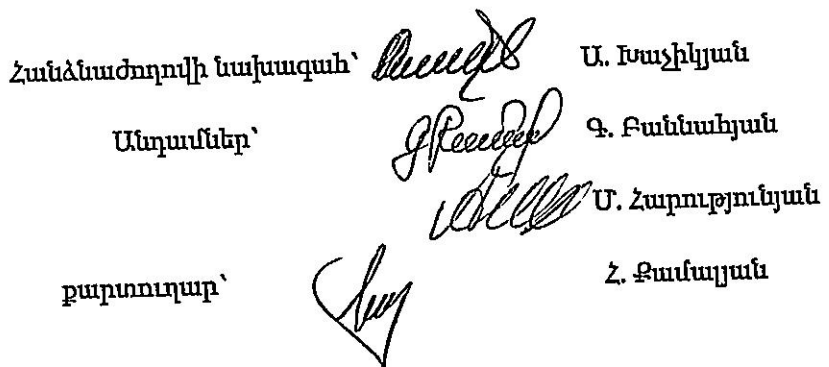 Հանձնաժողովի նախագահ՝ Ա. Խաչիկյան
Անդամներ՝ Գ. Բաննահյան
Մ. Հարությունյան
քարտուղար՝ Հ. Քամալյան